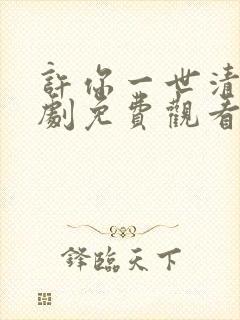 許你一世清
劇免費觀看
鋒臨天下